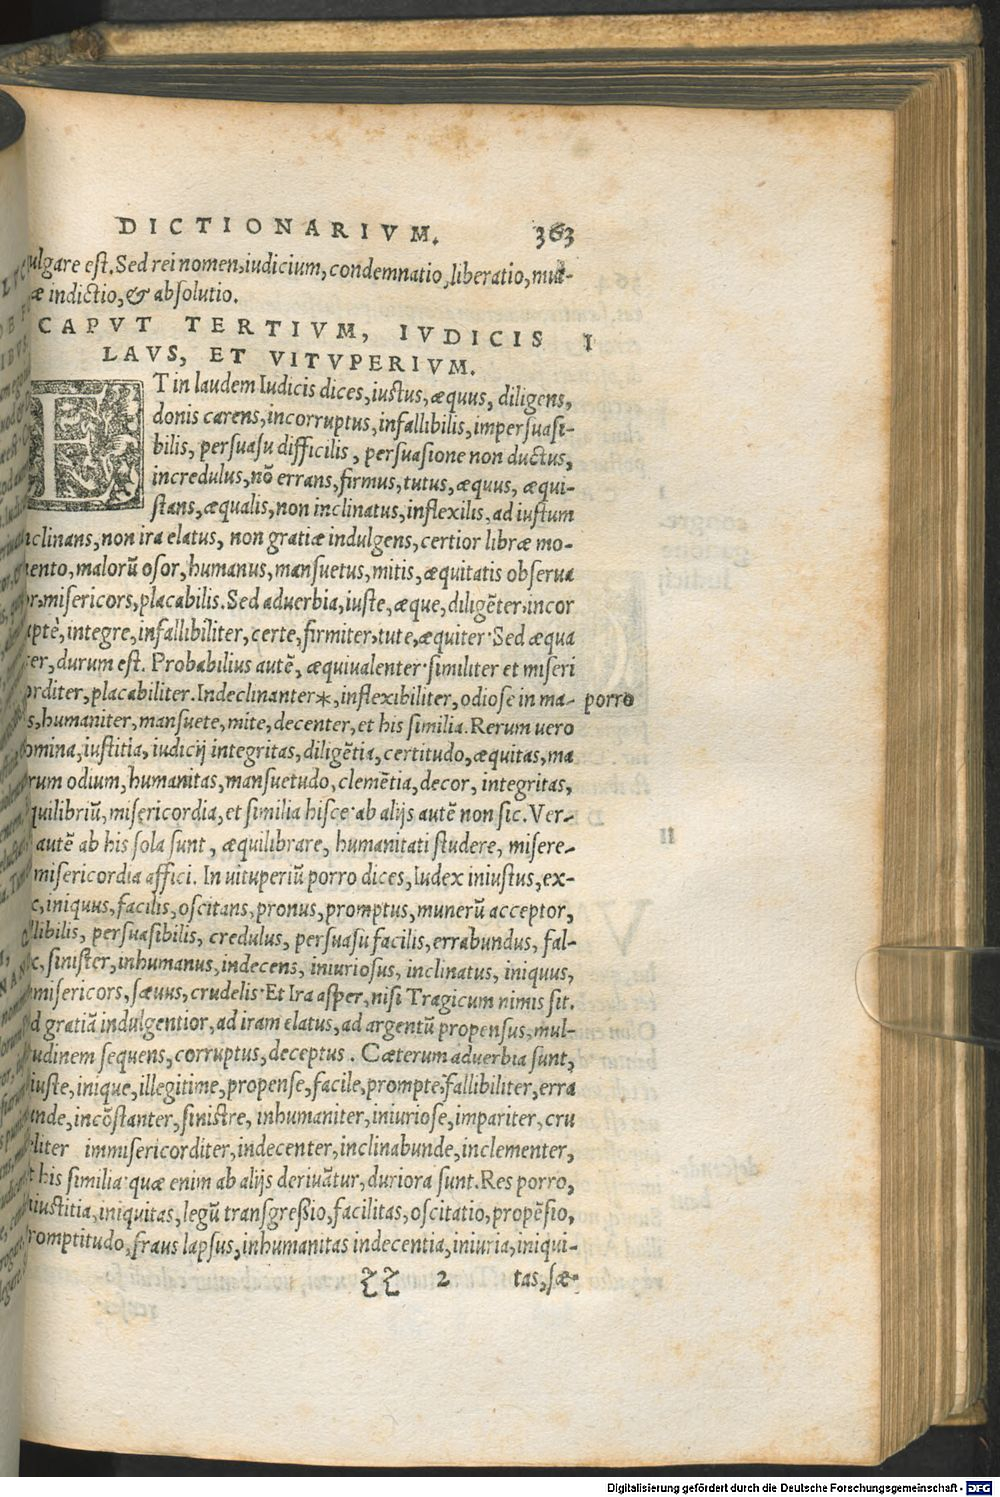 DICTIONARIVM. 363
ulgare est. Sed rei nomen, iudicium, condemnatio, liberatio, mul-
æ indictio, & absolutio.
CAPVT TERTIVM, IVDICIS I
LAVS, ET VITVPERIVM.
ET in laudem Iudicis dices, iustus, æquus, diligens,
donis carens, incorruptus, infallibilis, impersuasi-
bilis, persuasu difficilis, persuasione non ductus,
incredulus, nō errans, firmus, tutus, æquus, æqui-
stans, æqualis, non inclinatus, inflexilis, ad iustum
nclinans, non ira elatus, non gratiæ indulgens, certior libræ mo-
ento, malorū osor, humanus, mansuetus, mitis, æquitatis obserua
r, misericors, placabilis. Sed aduerbia, iuste, æque, diligēter, incor
uptè, integre, infallibiliter, certe, firmiter, tute, æquiter· Sed æqua
er, durum est. Probabilius autē, æquiualenter· similiter et miseri
orditer, placabiliter. Indeclinanter*, inflexibiliter, odiose in ma- porro
s, humaniter, mansuete, mite, decenter, et his similia. Rerum uero
omina, iustitia, iudicij integritas, diligētia, certitudo, æquitas, ma
rum odium, humanitas, mansuetudo, clemētia, decor, integritas,
quilibriū, misericordia, et similia hisce· ab alijs autē non sic. Ver-
autē ab his sola sunt, æquilibrare, humanitati studere, misere-
misericordia affici. In uituperiū porro dices, Iudex iniustus, ex-
c, iniquus, facilis, oscitans, pronus, promptus, munerū acceptor,
llibilis, persuasibilis, credulus, persuasu facilis, errabundus, fal-
x, sinister, inhumanus, indecens, iniuriosus, inclinatus, iniquus,
misericors, sæuus, crudelis· Et Ira asper, nisi Tragicum nimis sit.
d gratiā indulgentior, ad iram elatus, ad argentū propensus, mul-
tudinem sequens, corruptus, deceptus. Cæterum aduerbia sunt,
iuste, inique, illegitime, propense, facile, prompte, fallibiliter, erra
unde, incōstanter, sinistre, inhumaniter, iniuriose, impariter, cru
liter immisericorditer, indecenter, inclinabunde, inclementer,
t his similia· quæ enim ab alijs deriuātur, duriora sunt. Res porro,
iustitia, iniquitas, legū transgreßio, facilitas, oscitatio, propēsio,
romptitudo, fraus lapsus, inhumanitas indecentia, iniuria, iniqui-
2 tas, sæ-
Digitalisierung gefördert durch die Deutsche Forschungsgemeinschaft - DFG